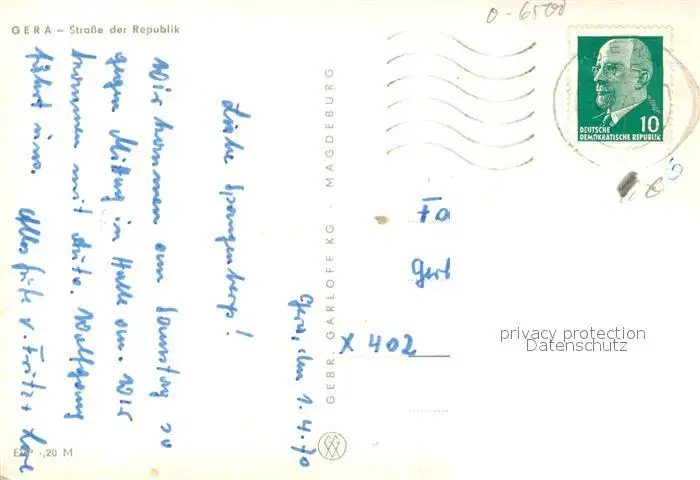 GERA – Straße der Republik
0-6500
Gera, den 1.4.70
Liebe Spangenbergs!
Wir kommen am Samstag so
gegen Mittag in Halle an. Wir
kommen mit Auto. Wolfgang
fährt uns. Alles Gute v. Fritz +
GEBR. GARLOFF KG · MAGDEBURG
EVP -,20 M
DEUTSCHE
DEMOKRATISCHE REPUBLIK
10
Fa
Gert
X 402
privacy protection
Datenschutz